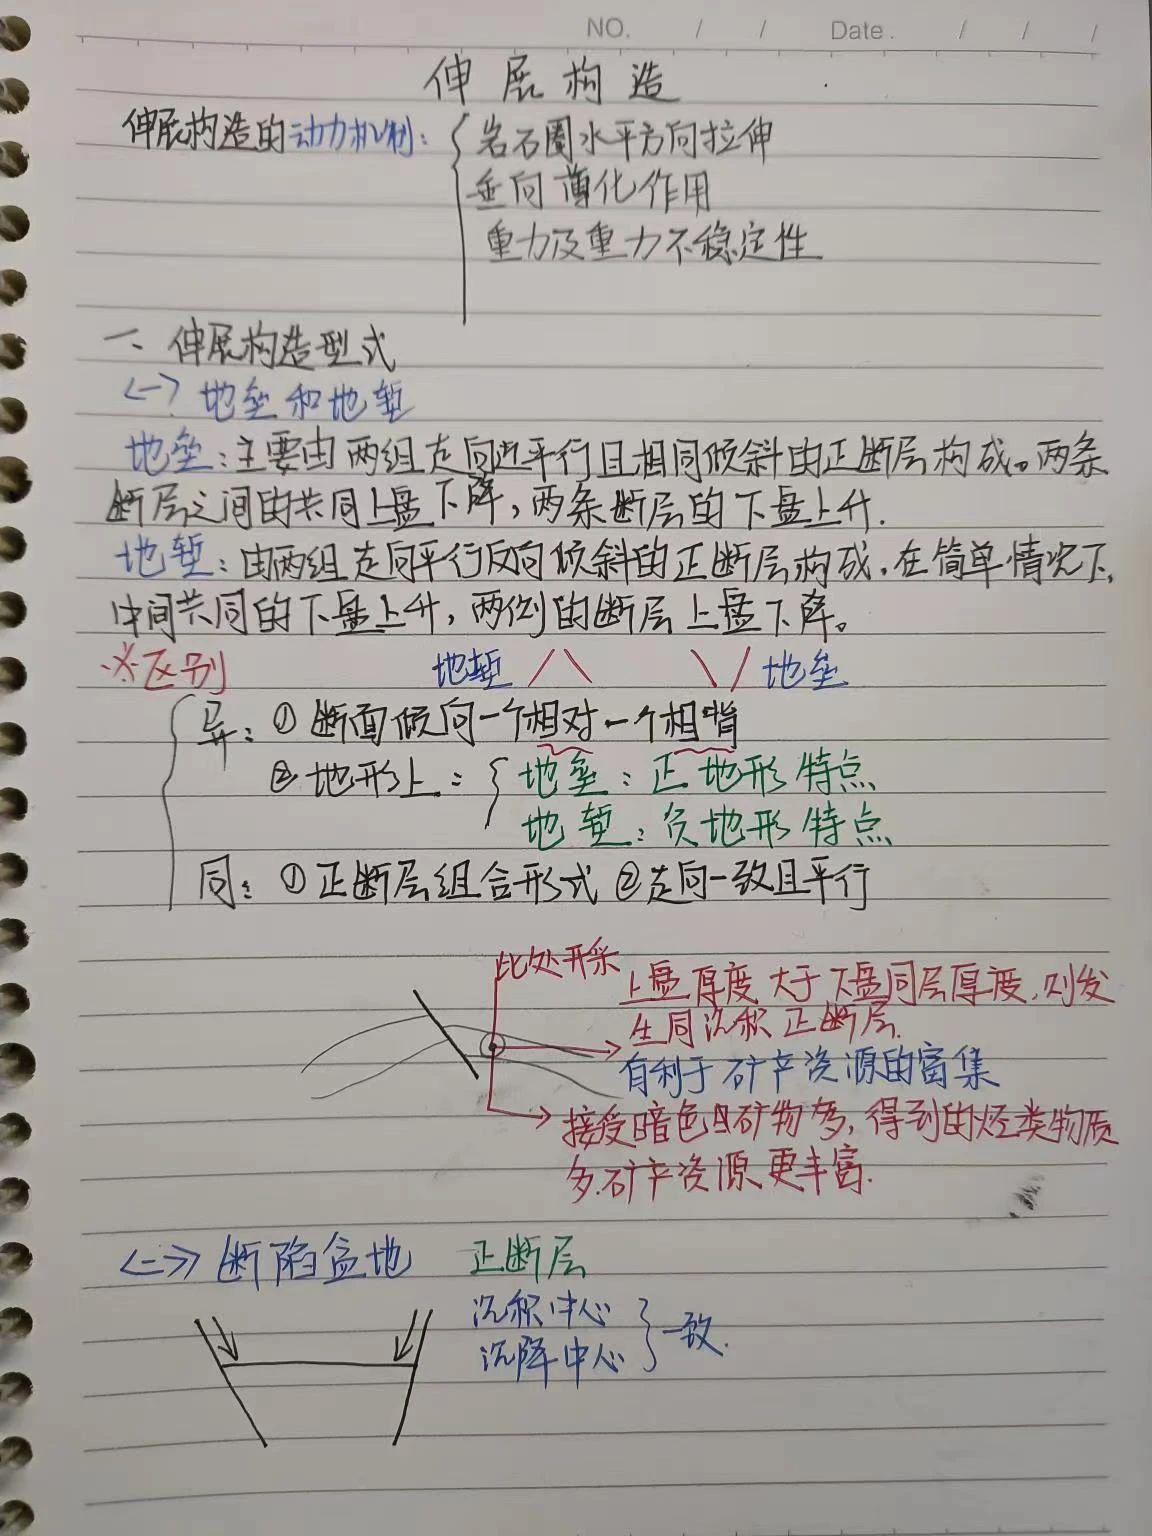 NO. / / Date. / / /
伸展构造
伸展构造的动力机制:
岩石圈水平方向拉伸
垂向薄化作用
重力及重力不稳定性
一、伸展构造型式
<一> 地垒和地堑
地垒:主要由两组走向近平行且相同倾斜的正断层构成。两条
断层之间的共同上盘下降,两条断层的下盘上升.
地堑:由两组走向平行反向倾斜的正断层构成.在简单情况下,
中间共同的下盘上升,两侧的断层上盘下降。
※区别 地堑 /\ \/ 地垒
异:①断面倾向一个相对一个相背
②地形上:
地垒:正地形特点
地堑:负地形特点
同:①正断层组合形式 ②走向一致且平行
此处开采
上盘厚度大于下盘同层厚度,则发
生同沉积正断层.
有利于矿产资源的富集
接受暗色矿物多,得到的烃类物质
多.矿产资源更丰富.
<二> 断陷盆地 正断层
沉积中心
沉降中心
一致.